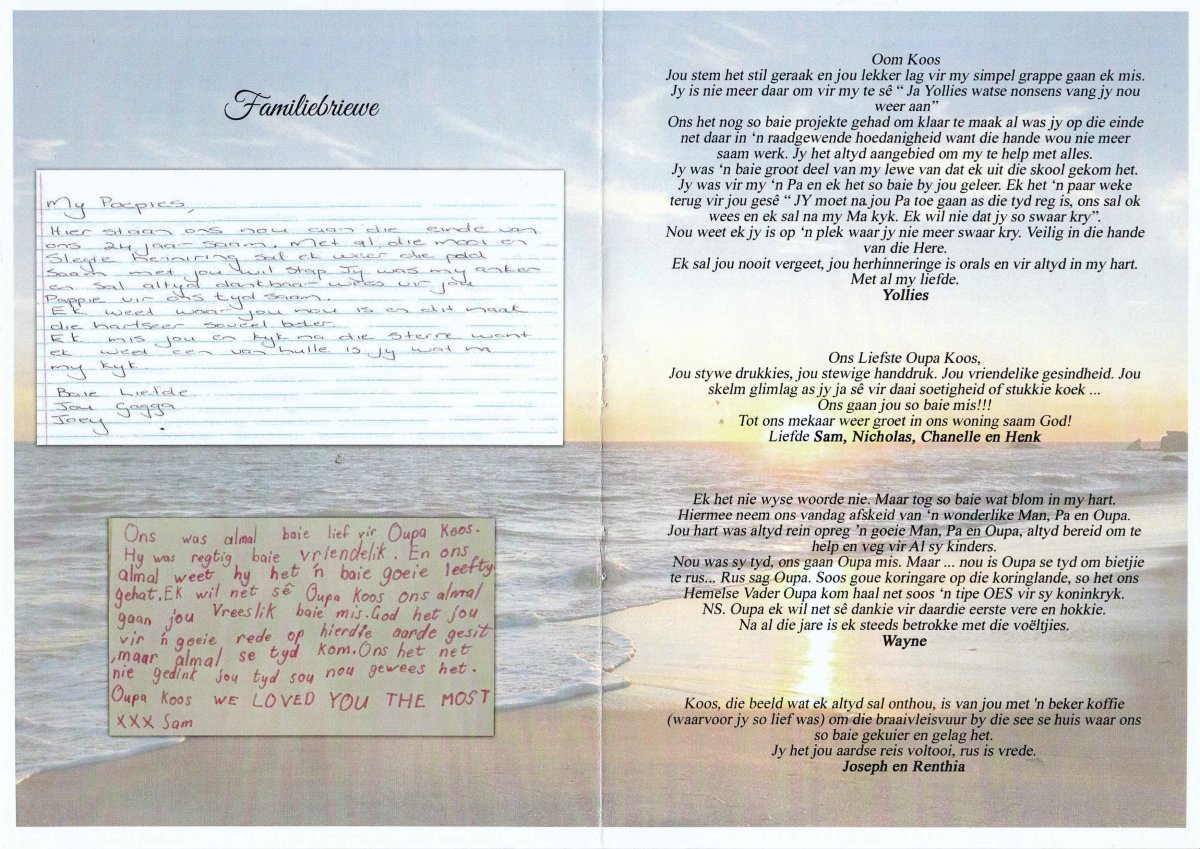 Familiebriewe
My Poepies,
Hier staan ons nou aan die einde van
ons 24 jaar saam. Met al die mooi en
Slegte heriniring sal ek weer die pad
saam met jou wil stap Jy was my anker
en sal altyd dankbaar wees vir jou
Pappie vir ons tyd saam.
Ek weet waar jou nou is en dit maak
die hartseer soveel beter.
Ek mis jou en kyk na die sterre want
ek weet een van hulle is jy wat na
my kyk.
Baie Liefde.
Jou Gogga
Joey
Ons was almal baie lief vir Oupa Koos.
Hy was regtig baie vriendelik. En ons
almal weet hy het 'n baie goeie leefty
gehat. EK wil net sê Oupa Koos ons almal
gaan jou Vreeslik baie mis. God het jou
vir 'n goeie rede op hierdie aarde gesit
,maar almal se tyd kom. Ons het net
nie gedink jou tyd sou nou gewees het.
Oupa Koos WE LOVED YOU THE MOST
XXX Sam
Oom Koos
Jou stem het stil geraak en jou lekker lag vir my simpel grappe gaan ek mis.
Jy is nie meer daar om vir my te sê “ Ja Yollies watse nonsens vang jy nou
weer aan”
Ons het nog so baie projekte gehad om klaar te maak al was jy op die einde
net daar in ‘n raadgewende hoedanigheid want die hande wou nie meer
saam werk. Jy het altyd aangebied om my te help met alles.
Jy was ‘n baie groot deel van my lewe van dat ek uit die skool gekom het.
Jy was vir my ‘n Pa en ek het so baie by jou geleer. Ek het ‘n paar weke
terug vir jou gesê “ JY moet na jou Pa toe gaan as die tyd reg is, ons sal ok
wees en ek sal na my Ma kyk. Ek wil nie dat jy so swaar kry”.
Nou weet ek jy is op ‘n plek waar jy nie meer swaar kry. Veilig in die hande
van die Here.
Ek sal jou nooit vergeet, jou herhinneringe is orals en vir altyd in my hart.
Met al my liefde.
Yollies
Ons Liefste Oupa Koos,
Jou stywe drukkies, jou stewige handdruk. Jou vriendelike gesindheid. Jou
skelm glimlag as jy ja sê vir daai soetigheid of stukkie koek ...
Ons gaan jou so baie mis!!!
Tot ons mekaar weer groet in ons woning saam God!
Liefde Sam, Nicholas, Chanelle en Henk
Ek het nie wyse woorde nie. Maar tog so baie wat blom in my hart.
Hiermee neem ons vandag afskeid van ‘n wonderlike Man, Pa en Oupa.
Jou hart was altyd rein opreg ’n goeie Man, Pa en Oupa, altyd bereid om te
help en veg vir Al sy kinders.
Nou was sy tyd, ons gaan Oupa mis. Maar ... nou is Oupa se tyd om bietjie
te rus... Rus sag Oupa. Soos goue koringare op die koringlande, so het ons
Hemelse Vader Oupa kom haal net soos ‘n tipe OES vir sy koninkryk.
NS. Oupa ek wil net sê dankie vir daardie eerste vere en hokkie.
Na al die jare is ek steeds betrokke met die voëltjies.
Wayne
Koos, die beeld wat ek altyd sal onthou, is van jou met 'n beker koffie
(waarvoor jy so lief was) om die braaivleisvuur by die see se huis waar ons
so baie gekuier en gelag het.
Jy het jou aardse reis voltooi, rus is vrede.
Joseph en Renthia